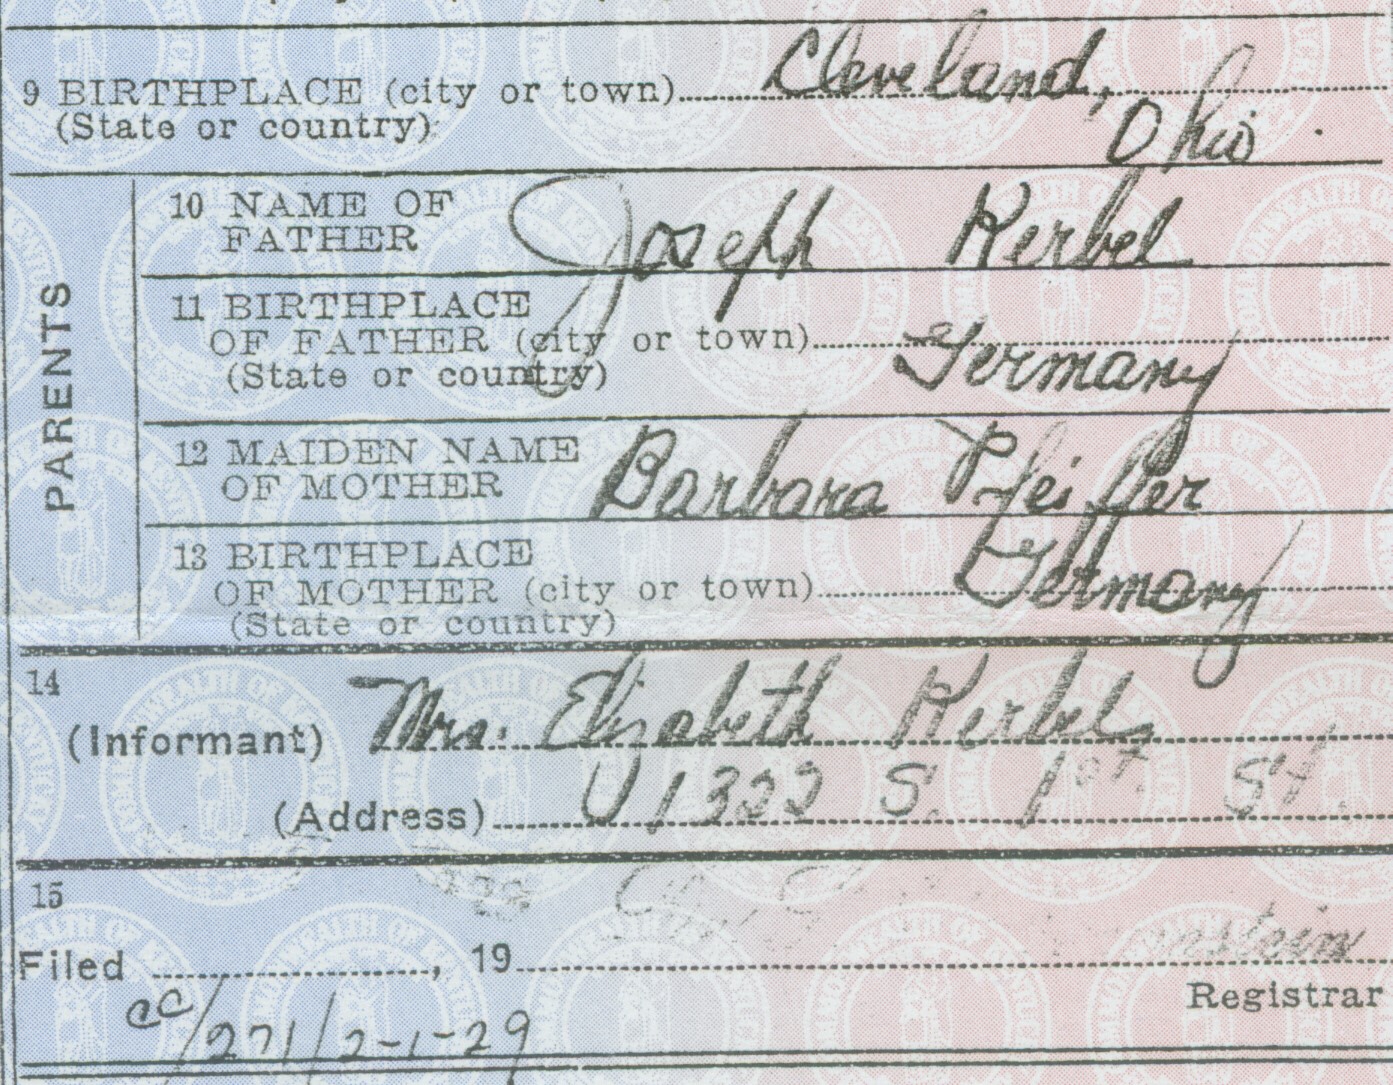 9 BIRTHPLACE (city or town) Cleveland,
(State or country) Ohio.
PARENTS
10 NAME OF
FATHER Joseph Kerbel
11 BIRTHPLACE
OF FATHER (city or town)
(State or country) Germany
12 MAIDEN NAME
OF MOTHER Barbara Pfeiffer
13 BIRTHPLACE
OF MOTHER (city or town) Germany
(State or country)
14
(Informant) Mrs. Elizabeth Kerbel
(Address) 1322 S. 1st. St.
15
Filed , 19
Registrar
cc/271/2-1-29